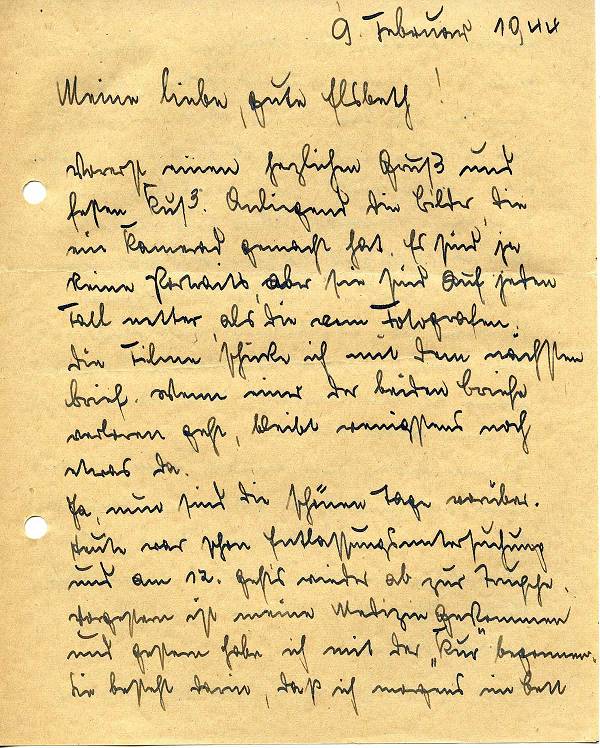 9. Februar 1944
Meine liebe, gute Elsbeth!
Vorerst einen herzlichen Gruß und
festen Kuß. Anliegend die Bilder, die
ein Kamerad gemacht hat. Es sind ja
keine Portraits, aber sie sind auf jeden
Fall netter, als die vom Fotografen.
Die Filme schicke ich mit dem nächsten
Brief. Wenn einer der beiden Briefe
verloren geht, bleibt wenigstens noch
etwas da.
Ja, nun sind die schönen Tage vorüber.
Heute war schon Entlassungsuntersuchung
und am 12. geht's wieder ab zur Truppe.
Vorgestern ist meine Medizin gekommen
und gestern habe ich mit der „Kur" begonnen.
Sie besteht darin, daß ich morgens im Bett